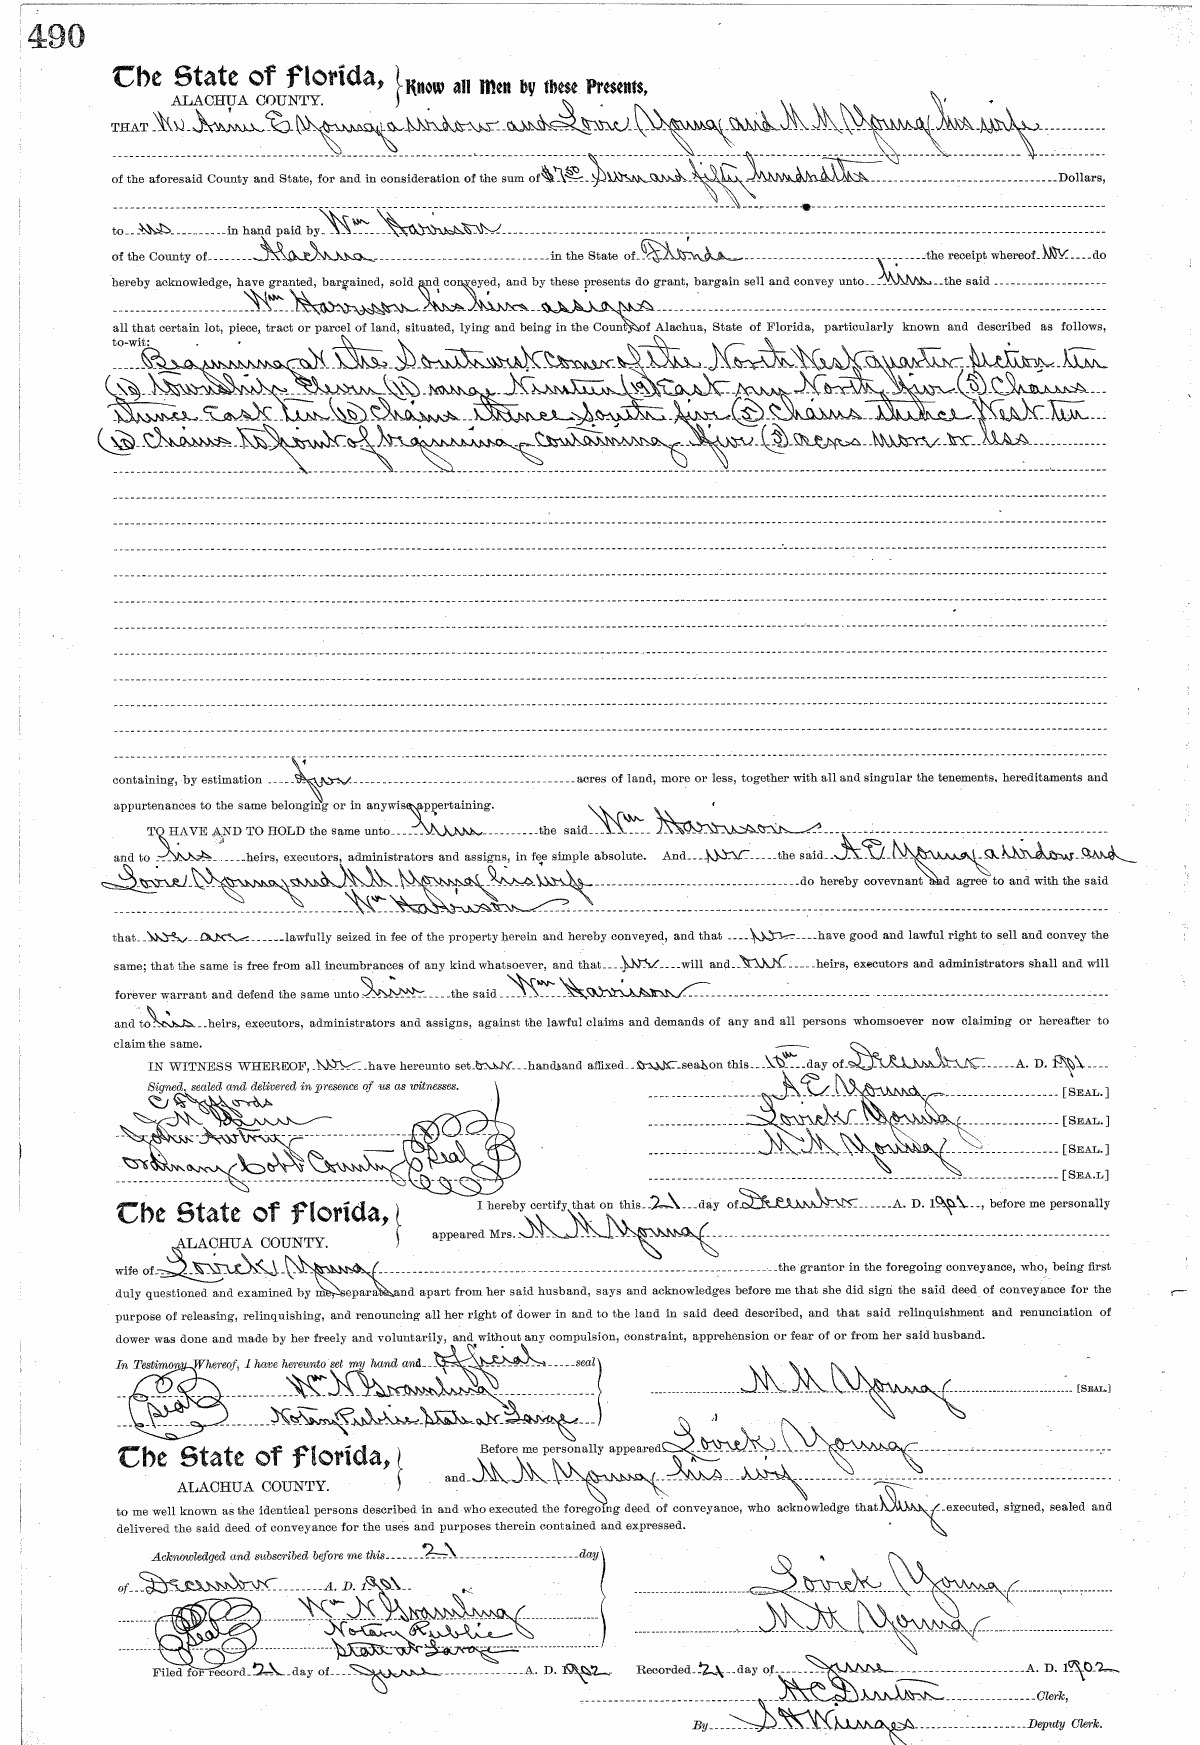 490
The State of Florida, } Know all Men by these Presents,
ALACHUA COUNTY.
THAT We Annie E Young a widow and Lovic Young and M M Young his wife
of the aforesaid County and State, for and in consideration of the sum of $7.50 Seven and fifty hundredths Dollars,
to us in hand paid by Wm Harrison
of the County of Alachua in the State of Florida the receipt whereof we do
hereby acknowledge, have granted, bargained, sold and conveyed, and by these presents do grant, bargain sell and convey unto him the said
Wm Harrison his heirs assigns
all that certain lot, piece, tract or parcel of land, situated, lying and being in the County of Alachua, State of Florida, particularly known and described as follows,
to-wit:
Beginning at the Southwest corner of the North West quarter section ten
(10) township Eleven (11) range Nineteen (19) East run North five (5) Chains
thence East ten (10) Chains thence South five (5) Chains thence West ten
(10) chains to point of beginning containing five (5) acres more or less
containing, by estimation five acres of land, more or less, together with all and singular the tenements, hereditaments and
appurtenances to the same belonging or in anywise appertaining.
TO HAVE AND TO HOLD the same unto him the said Wm Harrison
and to his heirs, executors, administrators and assigns, in fee simple absolute. And we the said A E Young a widow and
Lovic Young and M M Young his wife do hereby covevnant and agree to and with the said
Wm Harrison
that we are lawfully seized in fee of the property herein and hereby conveyed, and that we have good and lawful right to sell and convey the
same; that the same is free from all incumbrances of any kind whatsoever, and that we will and our heirs, executors and administrators shall and will
forever warrant and defend the same unto him the said Wm Harrison
and to his heirs, executors, administrators and assigns, against the lawful claims and demands of any and all persons whomsoever now claiming or hereafter to
claim the same.
IN WITNESS WHEREOF, we have hereunto set our hands and affixed our seals on this 10th day of December A. D. 1901
Signed, sealed and delivered in presence of us as witnesses.
A E Young [SEAL.]
J M
Lovick Young [SEAL.]
John Awtrey
M M Young [SEAL.]
Ordinary Cobb County Seal
[SEAL]
The State of Florida, } I hereby certify that on this 21 day of December A. D. 1901, before me personally
ALACHUA COUNTY. appeared Mrs. M M Young
wife of Lovick Young the grantor in the foregoing conveyance, who, being first
duly questioned and examined by me, separate and apart from her said husband, says and acknowledges before me that she did sign the said deed of conveyance for the
purpose of releasing, relinquishing, and renouncing all her right of dower in and to the land in said deed described, and that said relinquishment and renunciation of
dower was done and made by her freely and voluntarily, and without any compulsion, constraint, apprehension or fear of or from her said husband.
In Testimony Whereof, I have hereunto set my hand and official seal
Seal Wm N Gramling M M Young [SEAL.]
Notary Public State at Large
The State of Florida, } Before me personally appeared Lovick Young
ALACHUA COUNTY. and M M Young his wife
to me well known as the identical persons described in and who executed the foregoing deed of conveyance, who acknowledge that they executed, signed, sealed and
delivered the said deed of conveyance for the uses and purposes therein contained and expressed.
Acknowledged and subscribed before me this 21 day
of December A. D. 1901
Lovick Young
Seal Wm N Gramling
M M Young
Notary Public
State at Large
Filed for record 21 day of June A. D. 1902 Recorded 21 day of June A. D. 1902
H C Denton Clerk,
By S H Wienges Deputy Clerk.